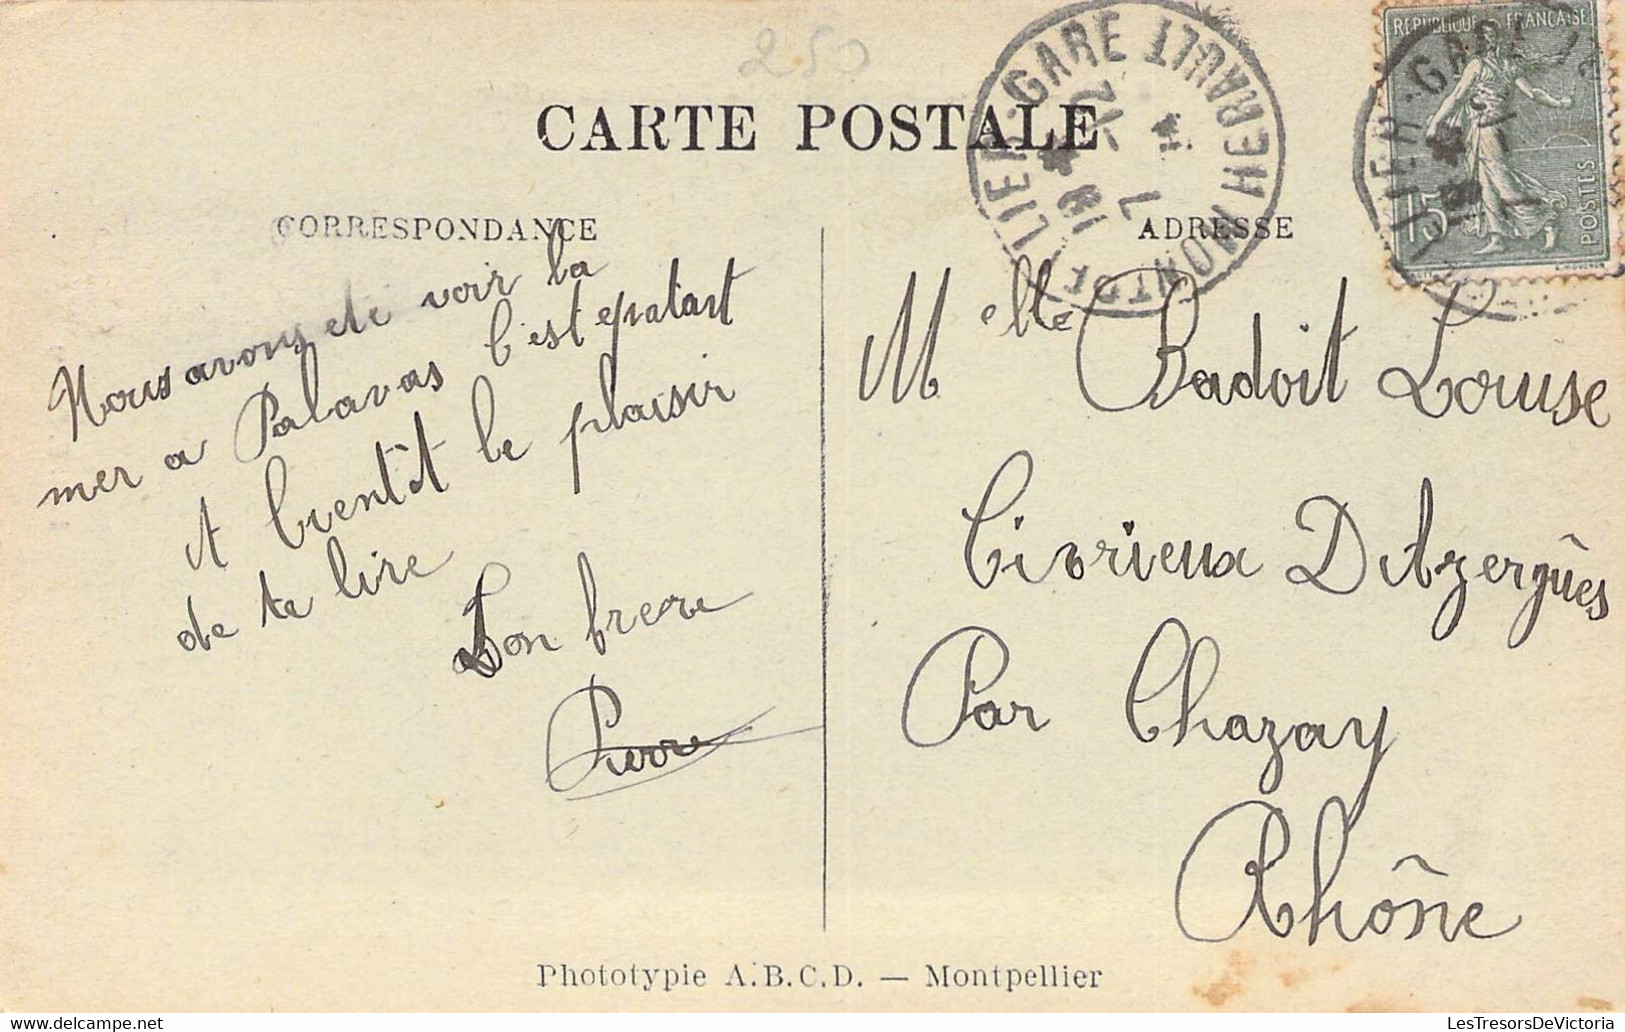 250
CARTE POSTALE
MONTPELLIER-GARE HERAULT
18 *
2 -
7
RÉPUBLIQUE FRANÇAISE
15c
POSTES
CORRESPONDANCE
Nous avons ete voir la
mer a Palavas C'est epatant
A bientôt le plaisir
de te lire
Ton frere
Pierre
ADRESSE
Melle Badoit Louise
Civrieux D'Azergûes
Par Chazay
Rhône
Phototypie A.B.C.D. — Montpellier
LesTresorsDeVictoria